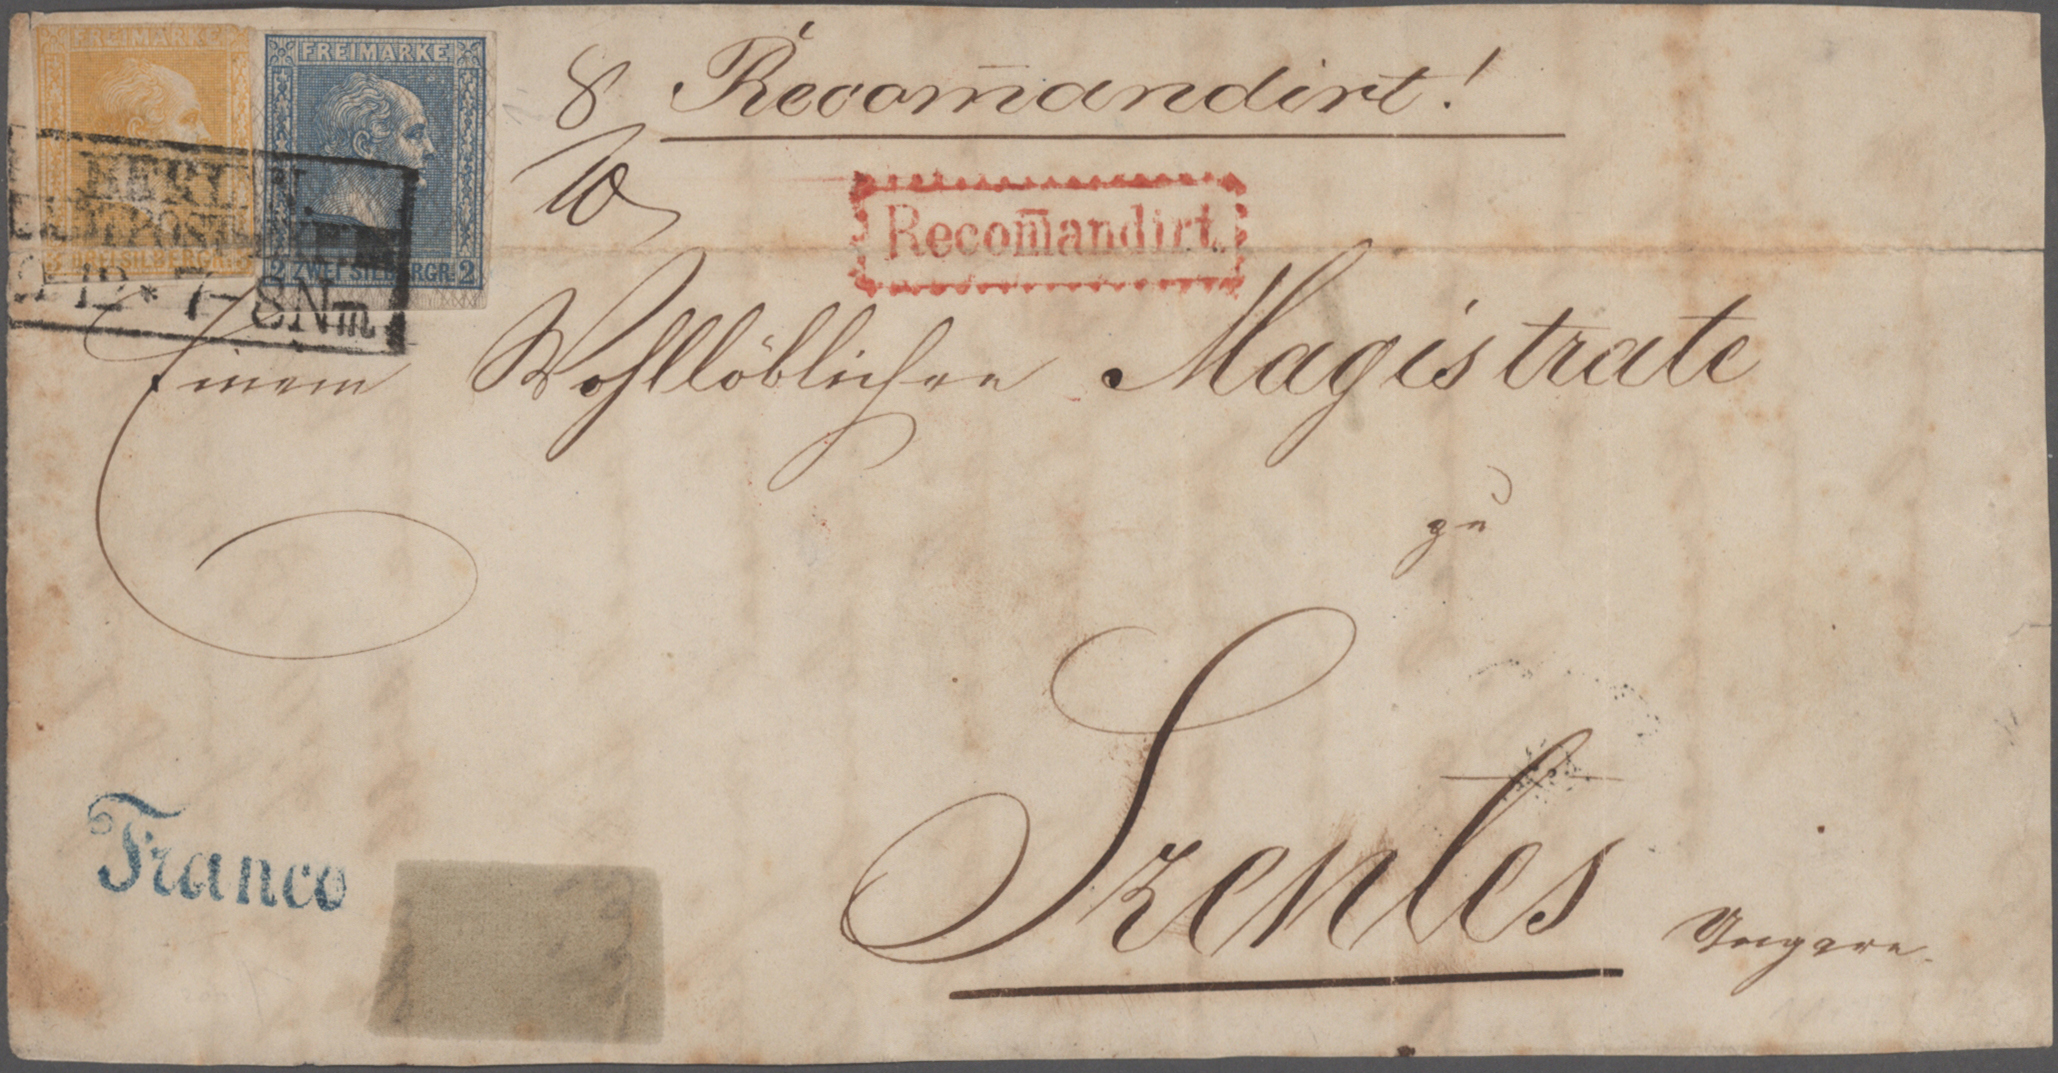 FREIMARKE
3 DREI SILBERGR.
FREIMARKE
2 ZWEI SILBERGR. 2
BERLIN
12 * 7-8 Nm
8 Recom̄andirt!
Recom̄andirt.
Einem Wohllöblichen Magistrate
zu
Szentes Ungarn.
Franco